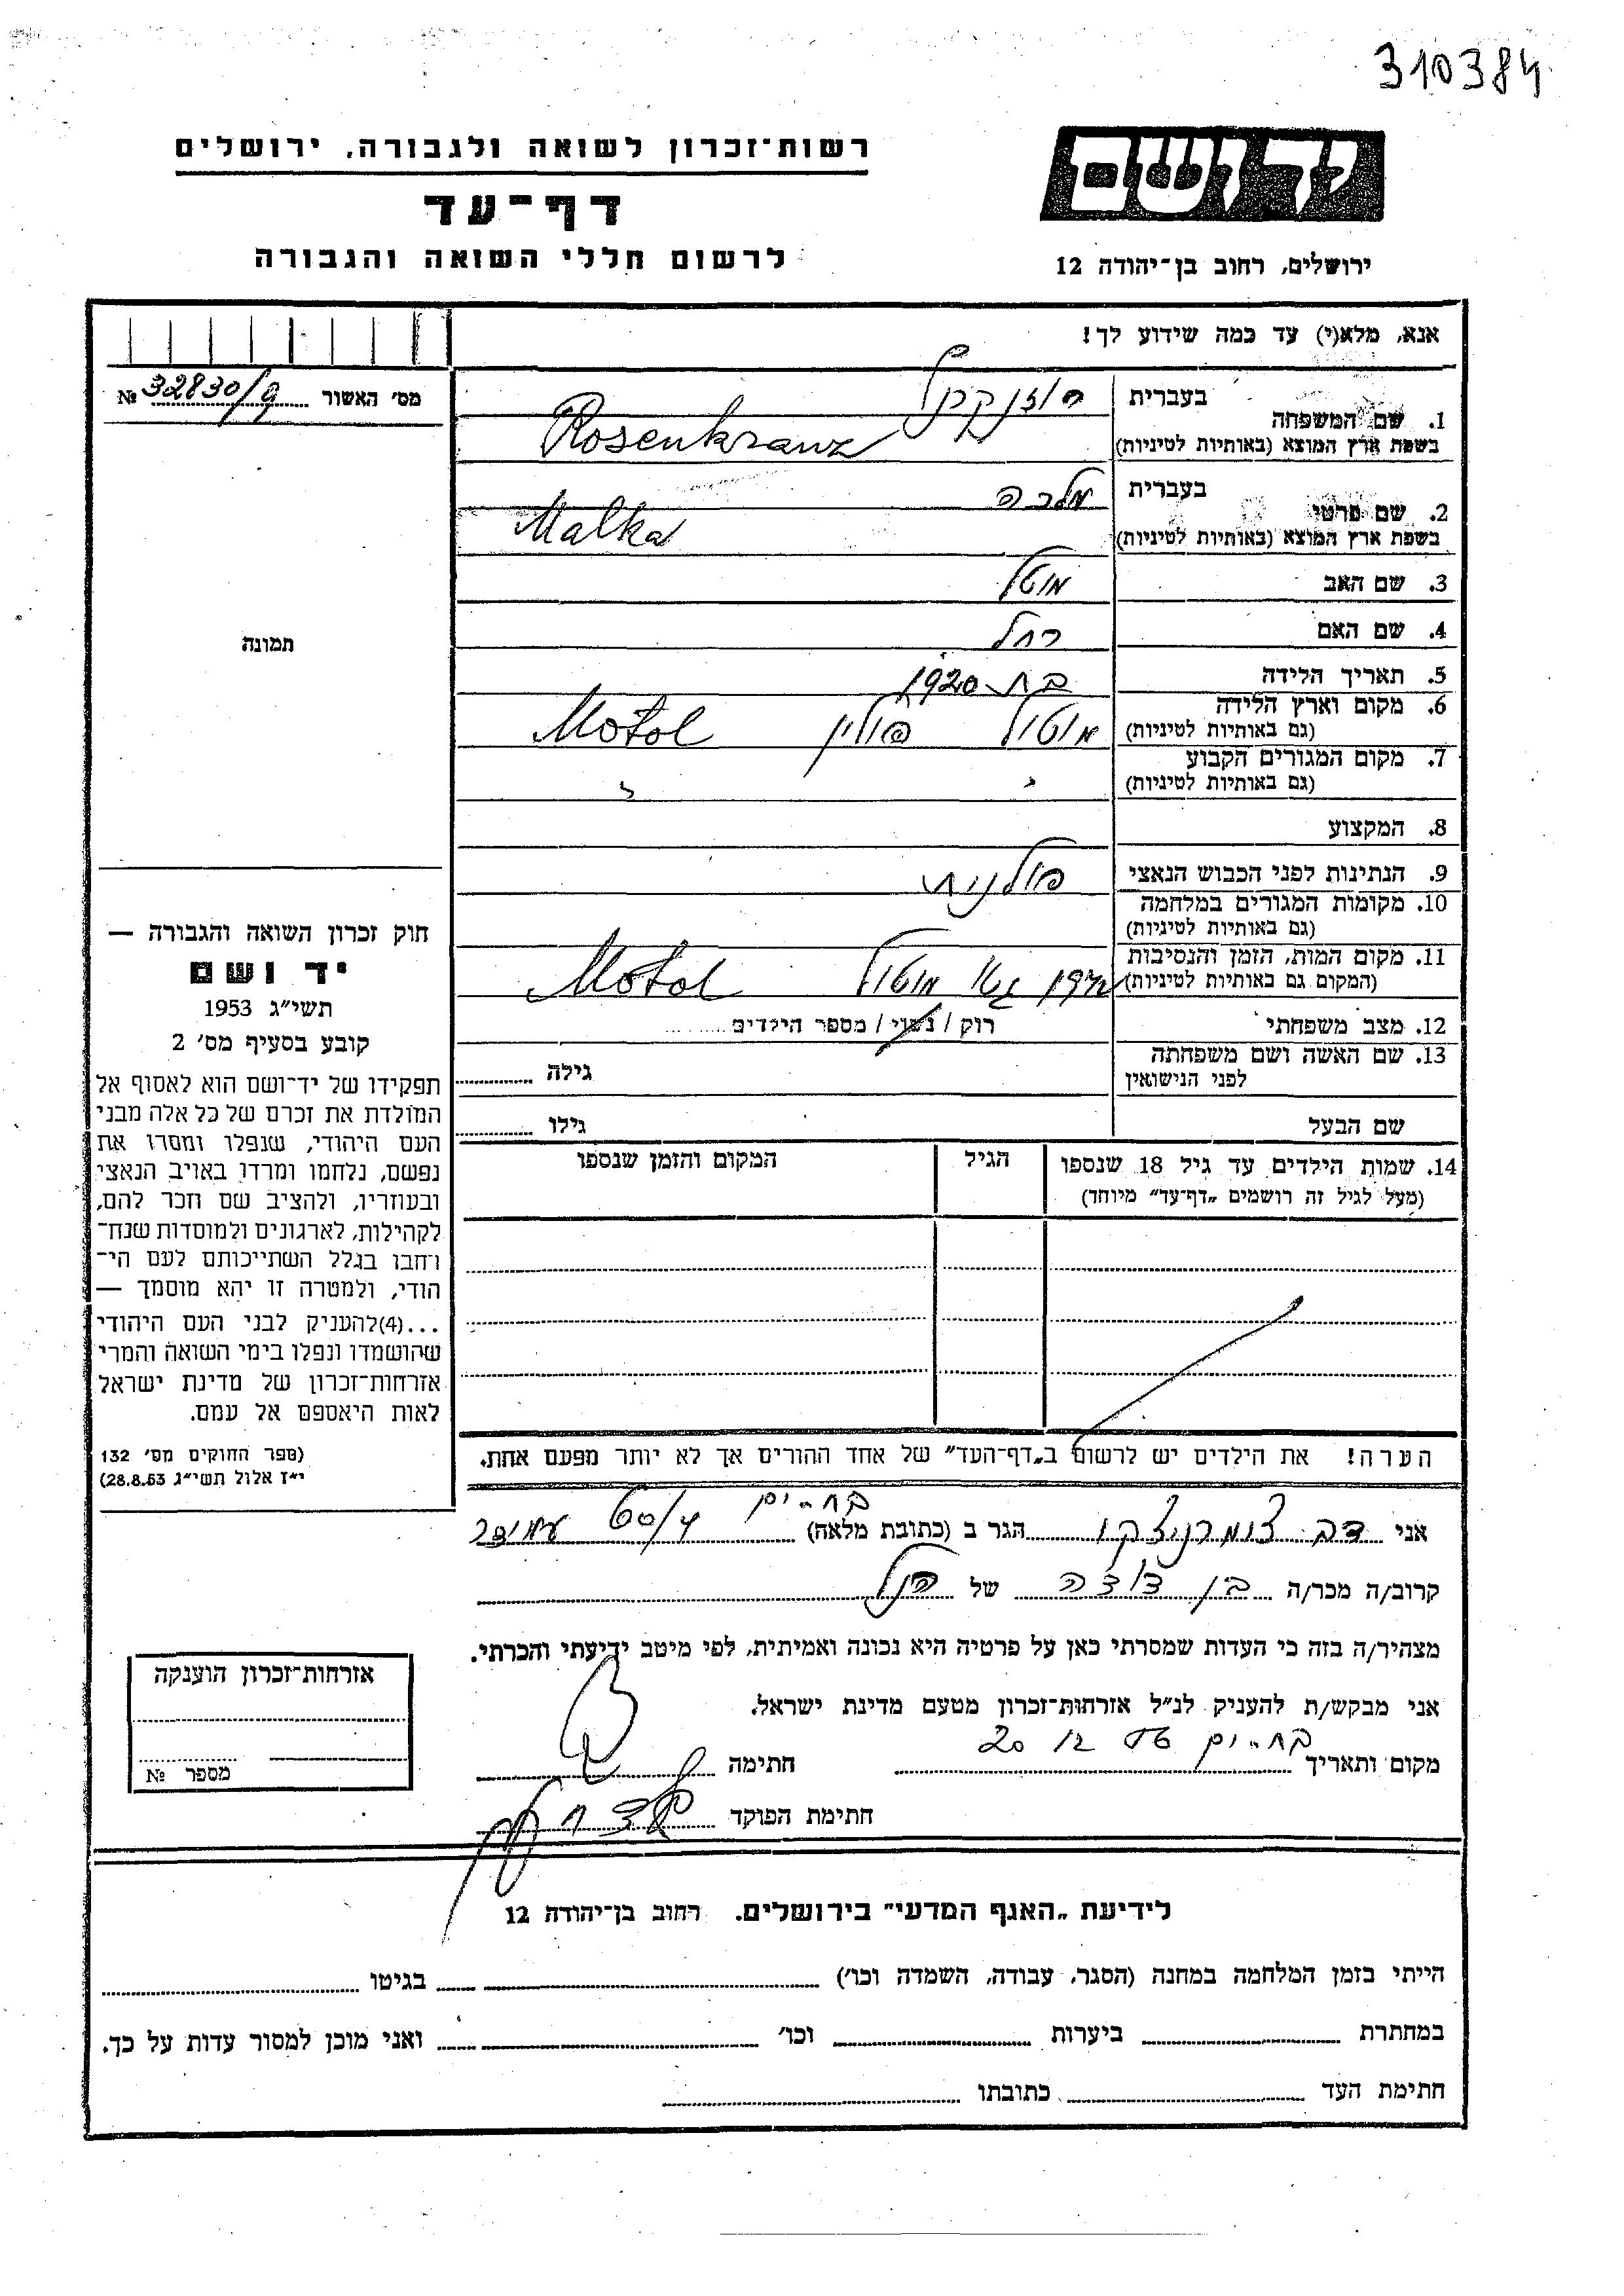 310384
רשות־זכרון לשואה ולגבורה, ירושלים
דף־עד
לרשום חללי השואה והגבורה
יד ושם
ירושלים, רחוב בן־יהודה 12
אנא, מלא(י) עד כמה שידוע לך!
מס׳ האשור № 32830/9
1. שם המשפחה
בעברית
בשפת ארץ המוצא (באותיות לטיניות) Rosenkranz
2. שם פרטי
בעברית מלכה
בשפת ארץ המוצא (באותיות לטיניות) Malka
3. שם האב מוטל
4. שם האם רחל
5. תאריך הלידה בת 1920
6. מקום וארץ הלידה
(גם באותיות לטיניות) מוטול פולין Motol
7. מקום המגורים הקבוע
(גם באותיות לטיניות)
8. המקצוע
9. הנתינות לפני הכבוש הנאצי פולנית
10. מקומות המגורים במלחמה
(גם באותיות לטיניות)
11. מקום המות, הזמן והנסיבות
(המקום גם באותיות לטיניות) 1942 גטו מוטול Motol
12. מצב משפחתי רוק / נשוי / מספר הילדים
13. שם האשה ושם משפחתה
לפני הנישואין
גילה
שם הבעל גילו
14. שמות הילדים עד גיל 18 שנספו
(מעל לגיל זה רושמים „דף־עד״ מיוחד)
הגיל
המקום והזמן שנספו
הערה! את הילדים יש לרשום ב„דף־העד״ של אחד ההורים אך לא יותר מפעם אחת.
תמונה
חוק זכרון השואה והגבורה —
יד ושם
תשי״ג 1953
קובע בסעיף מס׳ 2
תפקידו של יד־ושם הוא לאסוף אל
המולדת את זכרם של כל אלה מבני
העם היהודי, שנפלו ומסרו את
נפשם, נלחמו ומרדו באויב הנאצי
ובעוזריו, ולהציב שם וזכר להם,
לקהילות, לארגונים ולמוסדות שנח־
רחבו בגלל השתייכותם לעם הי־
הודי, ולמטרה זו יהא מוסמך —
...(4)להעניק לבני העם היהודי
שהושמדו ונפלו בימי השואה והמרי
אזרחות־זכרון של מדינת ישראל
לאות היאספם אל עמם.
(ספר החוקים מס׳ 132
י״ז אלול תשי״ג 28.8.53)
אני דב הגר ב (כתובת מלאה) בת-ים 60/4
קרוב/ה מכר/ה בן דודה של הנ״ל
מצהיר/ה בזה כי העדות שמסרתי כאן על פרטיה היא נכונה ואמיתית, לפי מיטב ידיעתי והכרתי.
אני מבקש/ת להעניק לנ״ל אזרחות־זכרון מטעם מדינת ישראל.
מקום ותאריך בת-ים 20 12 56 חתימה
חתימת הפוקד
אזרחות־זכרון הוענקה
מספר №
לידיעת „האגף המדעי״ בירושלים. רחוב בן־יהודה 12
הייתי בזמן המלחמה במחנה (הסגר, עבודה, השמדה וכו׳) בגיטו
במחתרת ביערות וכו׳ ואני מוכן למסור עדות על כך.
חתימת העד כתובתו